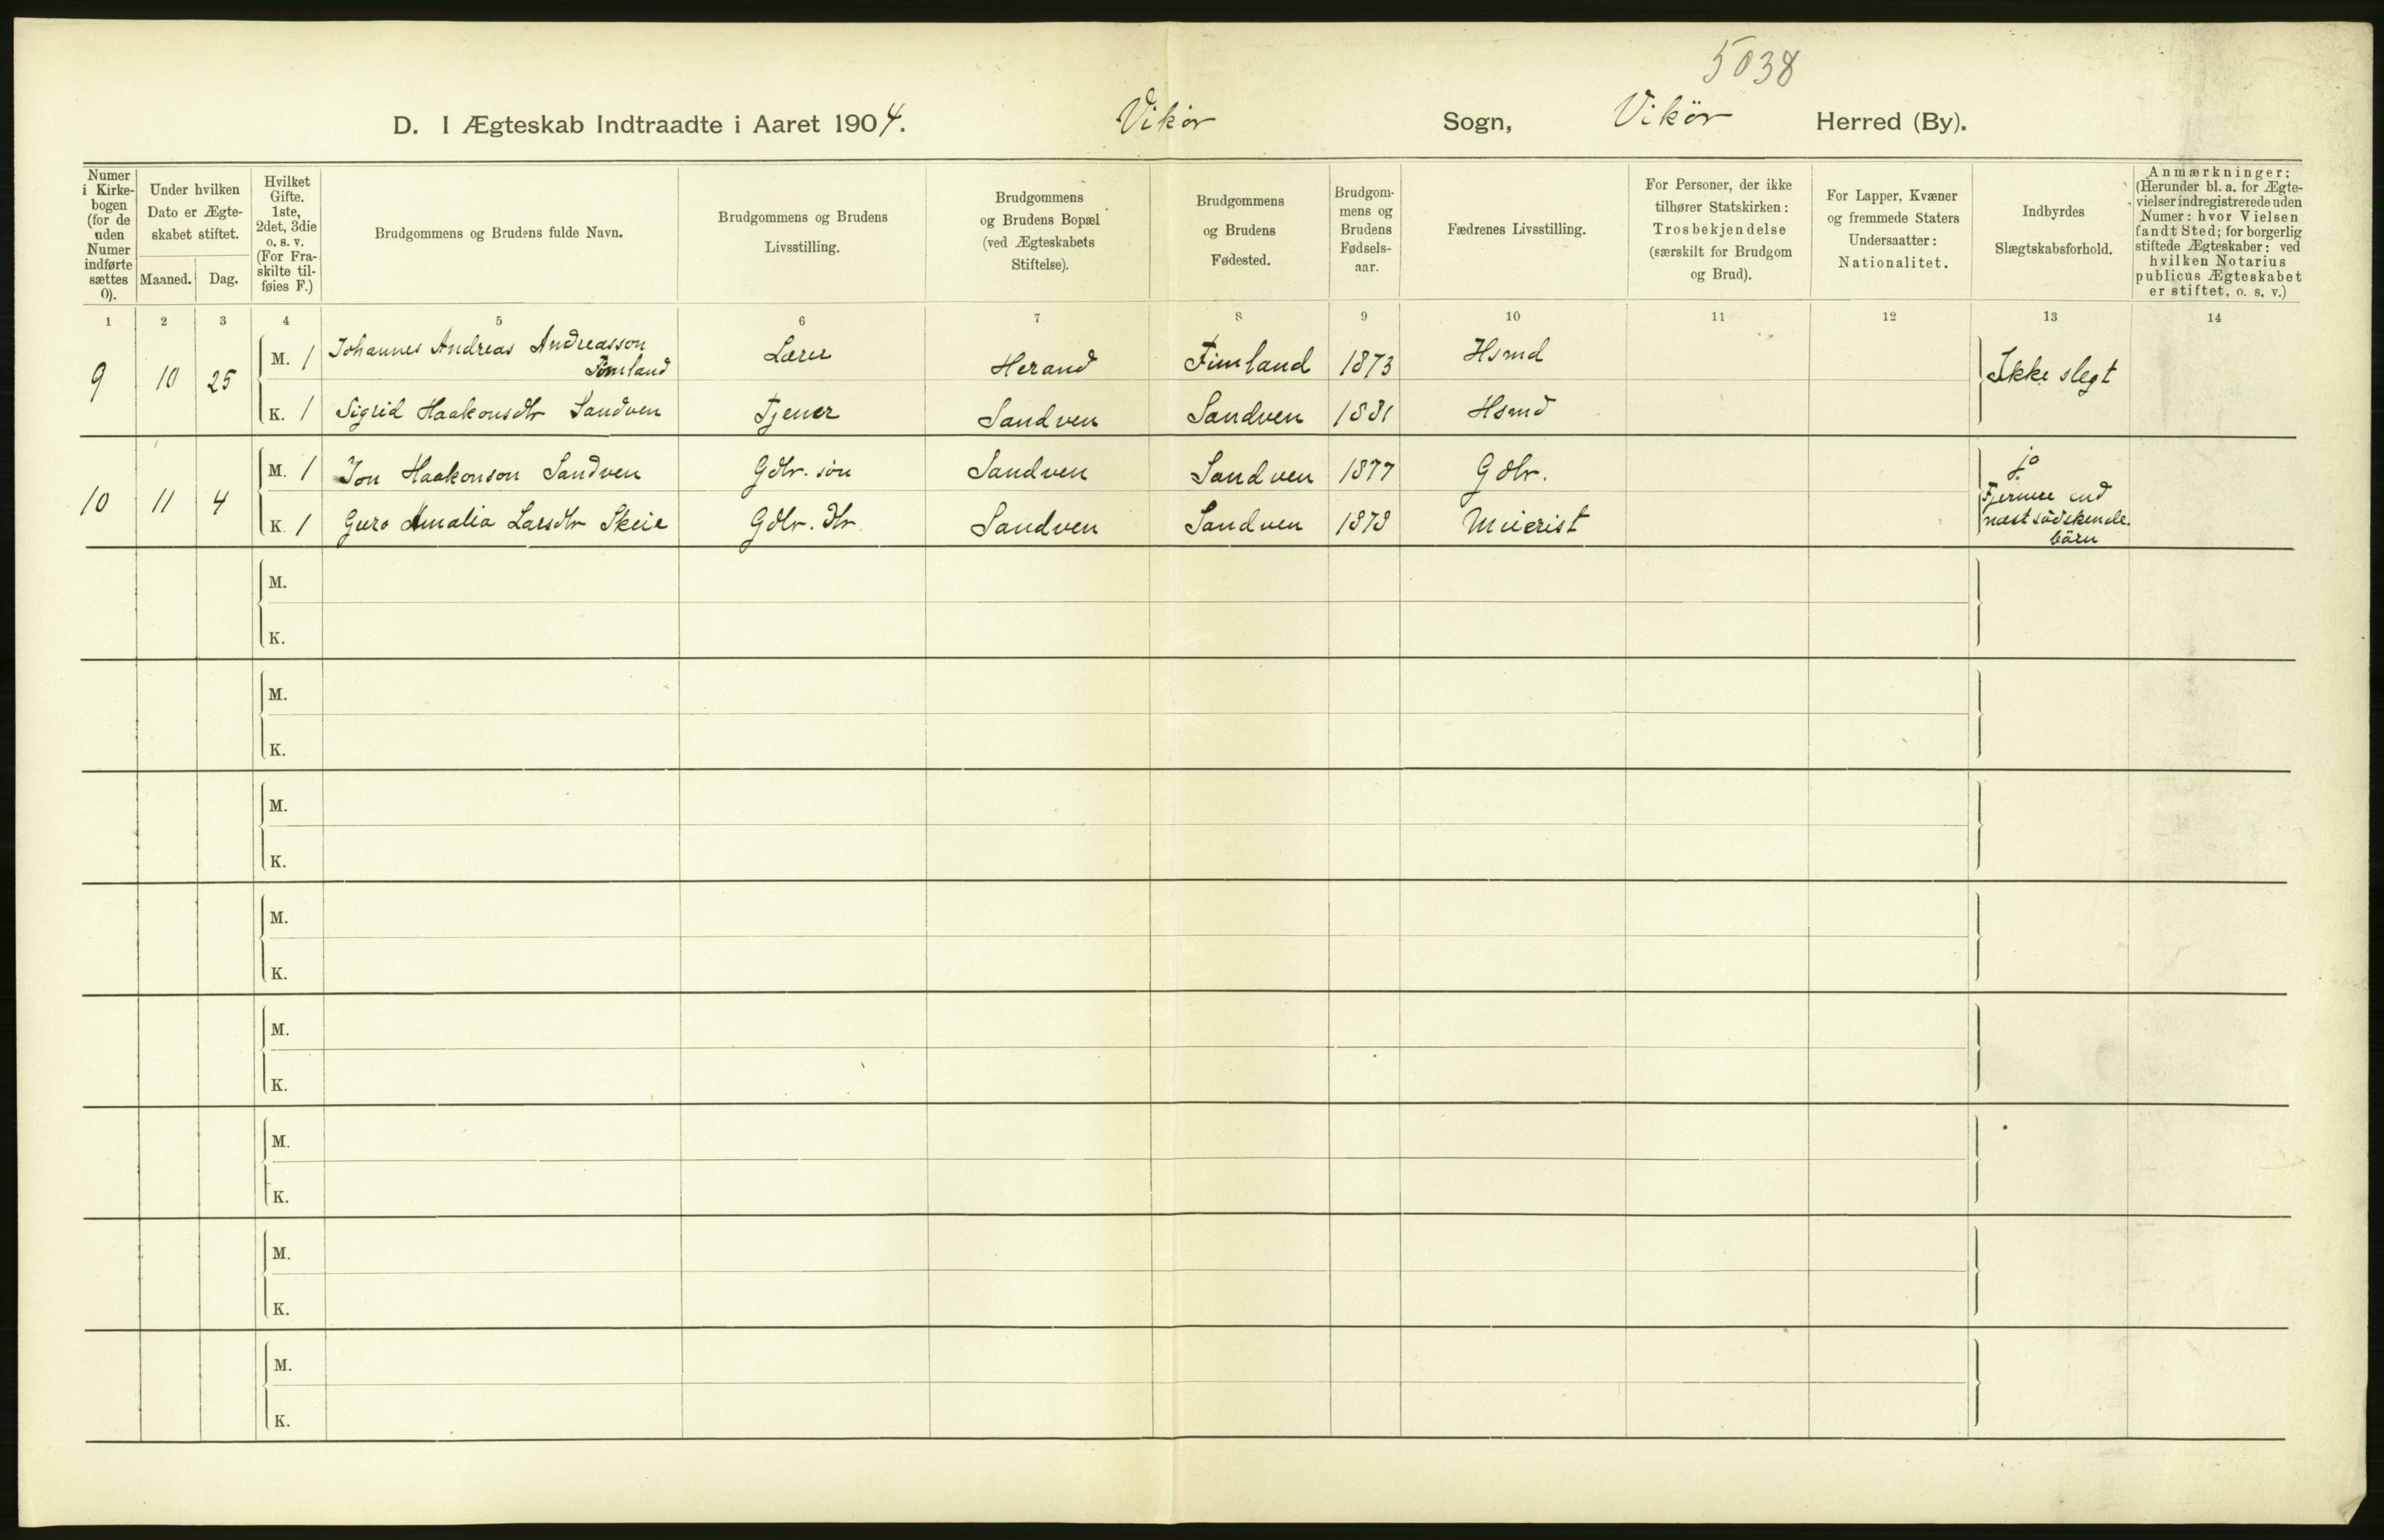 5038
D. I Ægteskab Indtraadte i Aaret 1904. Vikør Sogn, Vikör Herred (By).
Numer i Kirke-bogen (for de uden Numer indførte sættes 0).
Under hvilken Dato er Ægte-skabet stiftet.
Maaned. Dag.
Hvilket Gifte. 1ste, 2det, 3die o. s. v. (For Fra-skilte til-føies F.)
Brudgommens og Brudens fulde Navn.
Brudgommens og Brudens Livsstilling.
Brudgommens og Brudens Bopæl (ved Ægteskabets Stiftelse).
Brudgommens og Brudens Fødested.
Brudgom-mens og Brudens Fødsels-aar.
Fædrenes Livsstilling.
For Personer, der ikke tilhører Statskirken: Trosbekjendelse (særskilt for Brudgom og Brud).
For Lapper, Kvæner og fremmede Staters Undersaatter: Nationalitet.
Indbyrdes Slægtskabsforhold.
Anmærkninger: (Herunder bl. a. for Ægte-vielser indregistrerede uden Numer: hvor Vielsen fandt Sted; for borgerlig stiftede Ægteskaber: ved hvilken Notarius publicus Ægteskabet er stiftet, o. s. v.)
1 2 3 4 5 6 7 8 9 10 11 12 13 14
9 10 25 M. 1 Johannes Andreas Andreasson Fimland Lærer Herand Fimland 1873 Hsmd Ikke slegt
K. 1 Sigrid Haakonsdtr Sandven Tjener Sandven Sandven 1881 Hsmd
10 11 4 M. 1 Jon Haakonson Sandven Gdbr. sön Sandven Sandven 1877 Gdbr. ja
Fjernere end
næstsödskende
börn
K. 1 Guro Amalia Larsdtr Skeie Gdbr. dtr. Sandven Sandven 1878 Meierist
M.
K.
M.
K.
M.
K.
M.
K.
M.
K.
M.
K.
M.
K.
M.
K.